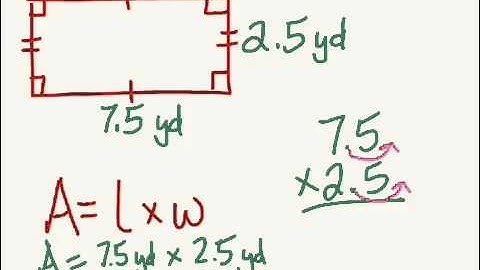 2.5 yd
7.5 yd
7.5
× 2.5
A = l × w
A = 7.5 yd × 2.5 yd